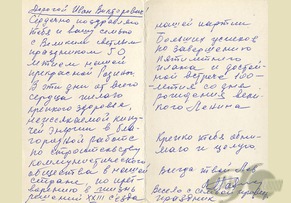 Дорогой Иван Викторович!
Сердечно поздравляю
тебя и вашу семью
с Великим светлым
праздником 50
летием нашей
прекрасной Родины.
В эти дни от всего
сердца желаю
крепкого здоровья,
неиссякаемой
энергии в
работе
по строительству
коммунистического
общества в нашей
стране, по
в жизнь
решений XXIII съезда
нашей партии
Больших успехов
по завершению
пятилетнего
плана и
встрече 100-
летия со дня
рождения
Ленина
Крепко тебя обни-
маю и целую
Всегда твой
праздник